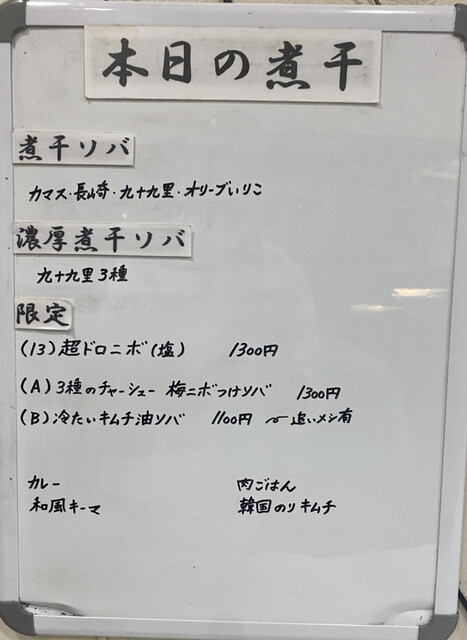 本日の煮干
煮干ソバ
カマス・長崎・九十九里・オリーブいりこ
濃厚煮干ソバ
九十九里3種
限定
(13)超ドロニボ(塩) 1300円
(A)3種のチャーシュー 梅ニボつけソバ 1300円
(B)冷たいキムチ油ソバ 1100円 〜追いメシ有
カレー 肉ごはん
和風キーマ 韓国のりキムチ